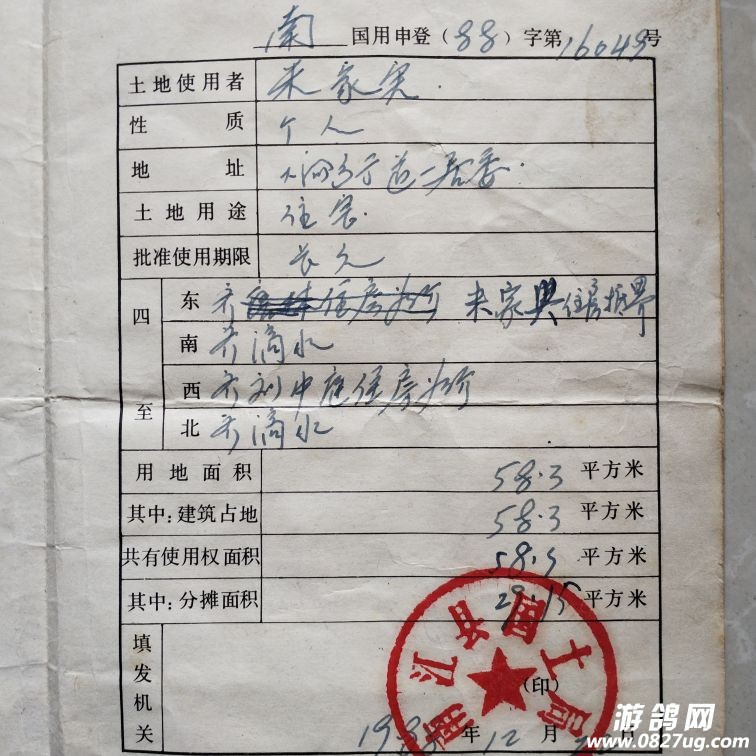 南 国用申登(88)字第16049号
土地使用者 米家宪
性质 个人
地址 道一居委
土地用途 住宅
批准使用期限 长久
四至
东 齐 米家興住房抵界
南 齐滴水
西 齐刘中庭住房为介
北 齐滴水
用地面积 58.3 平方米
其中:建筑占地 58.3 平方米
共有使用权面积 58.3 平方米
其中:分摊面积 29.15 平方米
填发机关
南江县国土局
(印)
1988年12月 日
游鸽网
www.0827ug.com